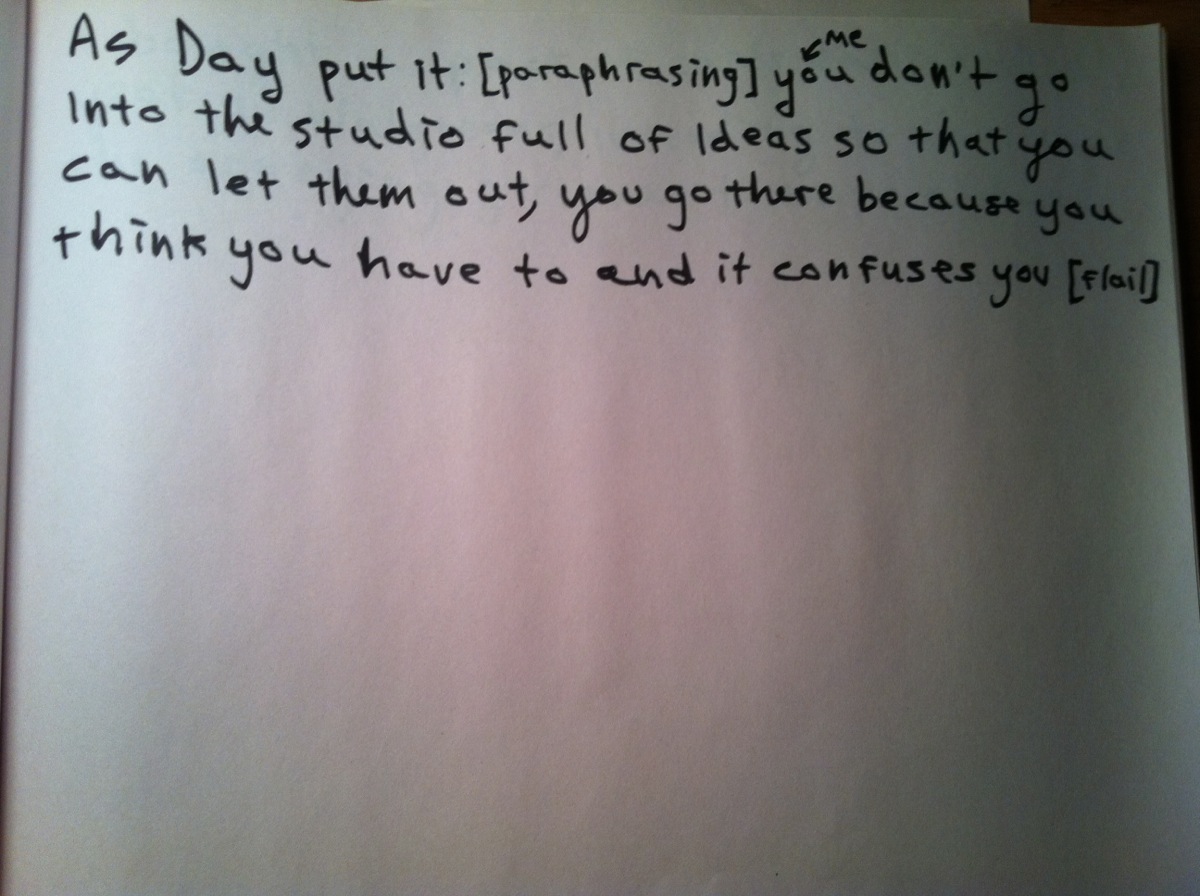 As Day put it: [paraphrasing] you ↙me don't go
Into the studio full of Ideas so that you
can let them out, you go there because you
think you have to and it confuses you [flail]